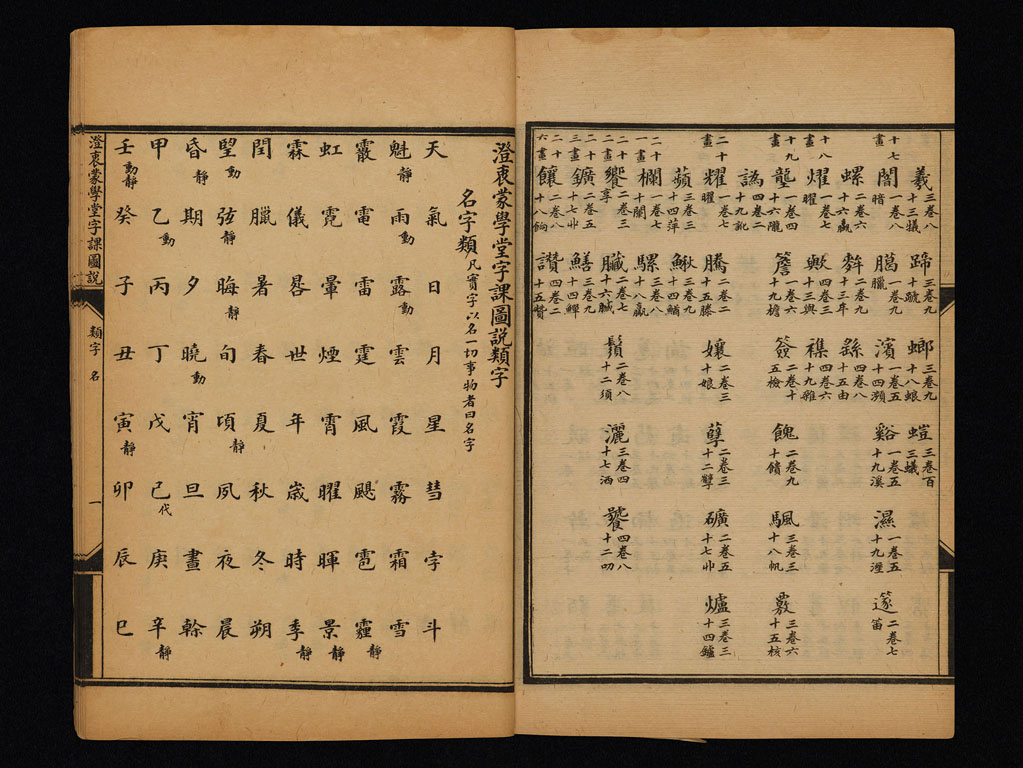 十七畫
羲 三卷八 十三犧 蹏 三卷九 螂 三卷九 十八蜋 螘 三卷百 三蟻
闇 一卷八 暗 臈 一卷九 臘 濱 一卷五 十四瀕 谿 一卷五 十九溪 濕 一卷五 十九溼 篴 二卷七 笛
螺 二卷六 十六蠃 二卷九 十三年 繇 四卷八 十五由
十八畫 燿 一卷七 曜 歟 四卷三 十三與 襍 四卷六 十九雜
十九畫 壟 一卷四 十六隴 簷 一卷六 十九檐 簽 二卷十 五檢 餽 二卷九 十饋 颿 三卷三 十八帆 覈 三卷六 十五核
譌 四卷二 十九訛
二十畫 耀 一卷七 曜 騰 二卷九 十五滕 孃 二卷三 十娘 孽 二卷三 十二孼 礦 二卷五 十七丱 爐 三卷三 十四鑪
蘋 三卷三 十四萍 鰍 三卷九 十四鰌
二十一畫 欄 一卷七 十闌 騾 三卷八 十八驘
二十二畫 饗 二卷三 享 贓 二卷七 鬚 二卷八 十二須 灑 三卷四 十七洒 饕 四卷八 十二叨
二十三畫 鑛 二卷五 十七丱 鱔 三卷九 十四鱓
二十六畫 饟 二卷八 十八餉 讚 四卷二 十五贊
澄衷蒙學堂字課圖說類字
名字類 凡實字以名一切事物者曰名字
天 氣 日 月 星 彗 孛 斗
魁靜 雨動 露動 雲 霞 霧 霜 雪
霰 電 雷 霆 風 颶 雹 霾靜
虹 霓 暈 煙 霄 曜 暉 景靜
霖 儀 晷 世 年 歲 時 季靜
閏 臘 暑 春 夏 秋 冬 朔
望動 弦靜 晦靜 旬 頃靜 夙 夜 晨
昏靜 期 夕 曉動 宵 旦 晝 榦
甲 乙動 丙 丁 戊 己代 庚 辛靜
壬動靜 癸 子 丑 寅靜 卯 辰 巳
澄衷蒙學堂字課圖說
類字 名
一